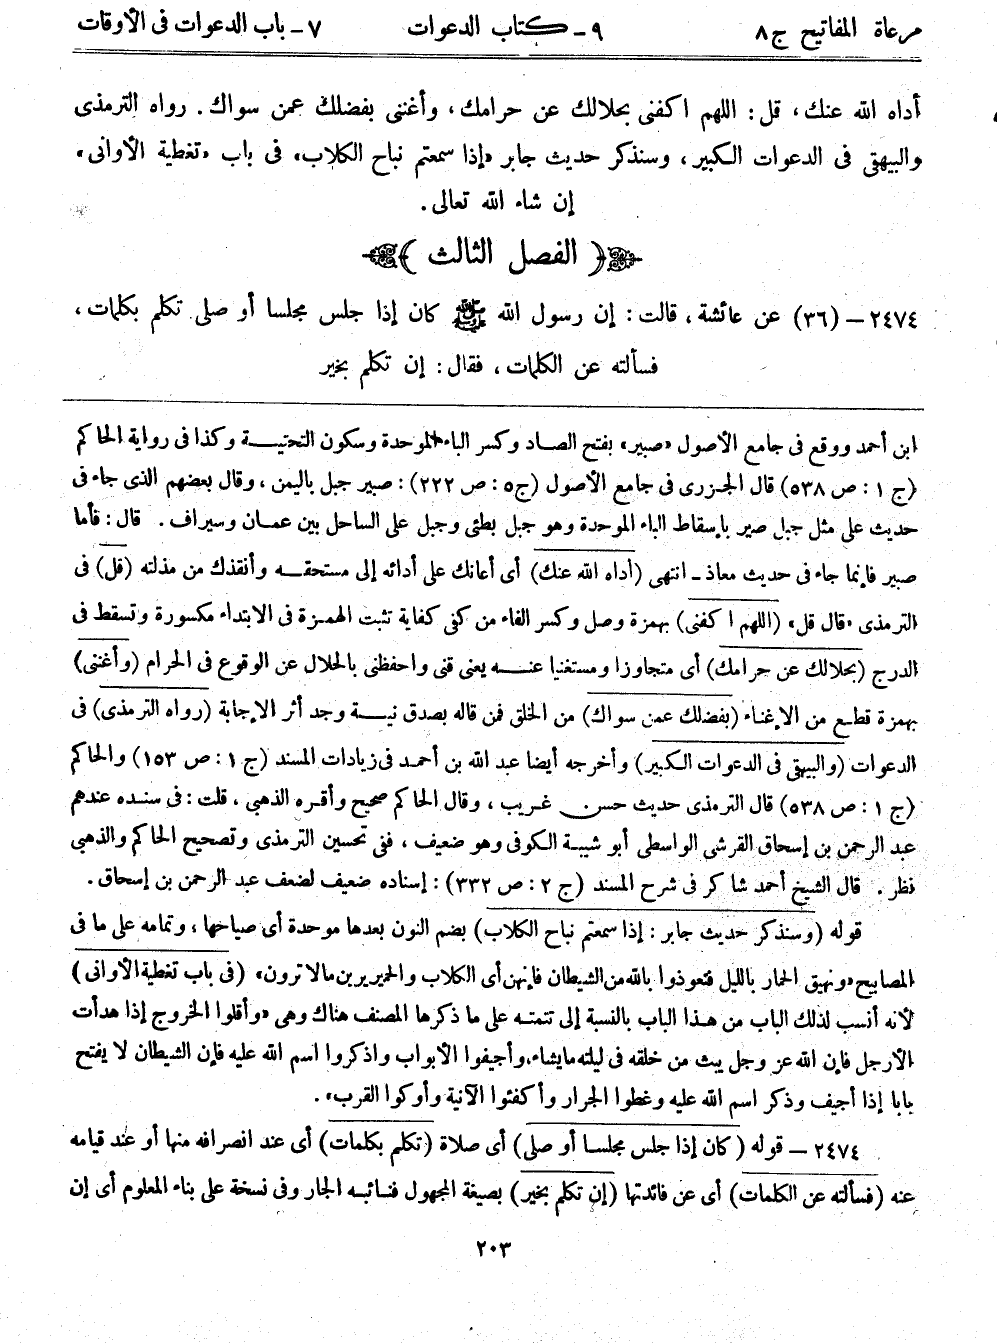 مرعاة المفاتيح ج ٨ ٩ - كتاب الدعوات ٧ - باب الدعوات فى الأوقات
أداه الله عنك، قل: اللهم اكفنى بحلالك عن حرامك، وأغننى بفضلك عمن سواك. رواه الترمذى
والبيهقى فى الدعوات الكبير، وسنذكر حديث جابر «إذا سمعتم نباح الكلاب» فى باب «تغطية الأوانى»
إن شاء الله تعالى.
﴿ الفصل الثالث ﴾
٢٤٧٤ – (٣٦) عن عائشة، قالت: إن رسول الله ﷺ كان إذا جلس مجلسا أو صلى تكلم بكلمات،
فسألته عن الكلمات، فقال: إن تكلم بخير
ابن أحمد ووقع فى جامع الأصول «صبير» بفتح الصاد وكسر الباء الموحدة وسكون التحتيـة وكذا فى رواية الحاكم
(ج ١: ص ٥٣٨) قال الجزرى فى جامع الأصول (ج ٥: ص ٢٢٢): صبير جبل باليمن، وقال بعضهم الذى جاء فى
حديث على مثل جبل صير بإسقاط الباء الموحدة وهو جبل بطئ وجبل على الساحل بين عمـان وسيراف. قال: فأما
صبير فإنما جاء فى حديث معاذ ـ انتهى (أداه الله عنك) أى أعانك على أدائه إلى مستحقـه وأنقذك من مذلته (قل) فى
الترمذى «قال قل» (اللهم اكفنى) بهمزة وصل وكسر الفاء من كفى كفاية تثبت الهمـزة فى الابتداء مكسورة وتسقط فى
الدرج (بحلالك عن حرامك) أى متجاوزا ومستغنيا عنـه يعنى قنى واحفظنى بالحلال عن الوقوع فى الحرام (وأغننى)
بهمزة قطـع من الإغنـاء (بفضلك عمن سواك) من الخلق فمن قاله بصدق نيـة وجد أثر الإجابة (رواه الترمذى) فى
الدعوات (والبيهقى فى الدعوات الكبير) وأخرجه أيضا عبد الله بن أحمـد فى زيادات المسند (ج ١: ص ١٥٣) والحاكم
(ج ١: ص ٥٣٨) قال الترمذى حديث حسن غريب، وقال الحاكم صحيح وأقره الذهبى، قلت: فى سنده عندهم
عبد الرحمن بن إسحاق القرشى الواسطى أبو شيبـة الكوفى وهو ضعيف، ففى تحسين الترمذى وتصحيح الحاكم والذهبى
نظر. قال الشيخ أحمد شاكر فى شرح المسند (ج ٢: ص ٣٣٢): إسناده ضعيف لضعف عبد الرحمن بن إسحاق.
قوله (وسنذكر حديث جابر: إذا سمعتم نباح الكلاب) بضم النون بعدها موحدة أى صياحها، وتمامه على ما فى
المصابيح «ونهيق الحمار بالليل فتعوذوا بالله من الشيطان فإنهن أى الكلاب والحمير يرين ما لا ترون» (فى باب تغطية الأوانى)
لأنه أنسب لذلك الباب من هـذا الباب بالنسبة إلى تتمتـه على ما ذكرها المصنف هناك وهى «وأقلوا الخروج إذا هدأت
الأرجل فإن الله عز وجل يبث من خلقه فى ليلته ما يشاء، وأجيفوا الأبواب واذكروا اسم الله عليه فإن الشيطان لا يفتح
بابا إذا أجيف وذكر اسم الله عليه وغطوا الجرار وأكفئوا الآنية وأوكوا القرب».
٢٤٧٤ – قوله (كان إذا جلس مجلسا أو صلى) أى صلاة (تكلم بكلمات) أى عند انصرافه منها أو عند قيامه
عنه (فسألته عن الكلمات) أى عن فائدتها (إن تكلم بخير) بصيغة المجهول فنـائبـه الجار وفى نسخة على بناء المعلوم أى إن
٢٠٣